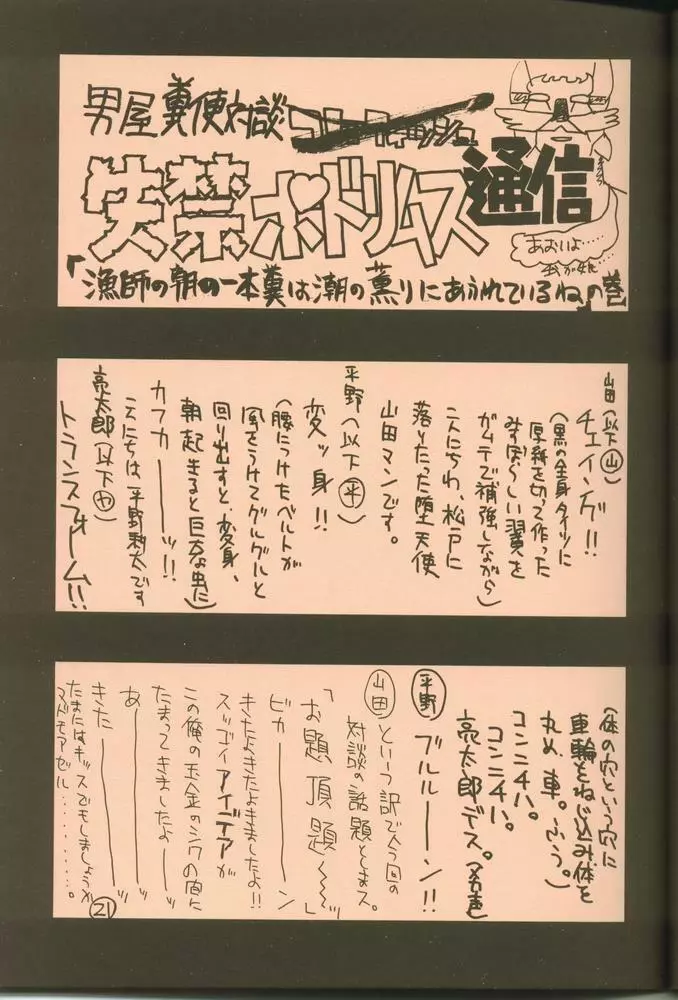 男屋糞便対談
失禁ボドリムス通信
あおいよ……
我が娘…
「漁師の朝の一本糞は潮の薫りにあふれているね」の巻
山田(以下山)
チェインヂ!!
(黒の全身タイツに
厚紙を切って作った
みすぼらしい翼を
ガムテで補強しながら)
こんにちわ、松戸に
落りたった堕天使
山田マンです。
平野(以下平)
変ッ身!!
(腰につけたベルトが
風をうけてグルグルと
回り出すと、変身、
朝起きると巨大な虫に)
カフカーーッ!!
こんにちは、平野耕太です
亮太郎(以下や)
トランスフォーム!!
(体の穴という穴に
車輪をねじ込み体を
丸め、車。ふう。)
コンニチハ。
コンニチハ。
亮太郎デス。(名声)
平野 ブルルーーン!!
山田 という訳で今回の
対談の話題としまス。
「お題頂題〜〜」
ピカーーーン
きたよきたよきましたよ!!
スッゴイアイデアが
この俺の玉金のシワの間に
たまってきましたよーーッ
あーーーーッ
きたーーーーッ
たまにはキッスでもしましょうか
マドモアゼル………。
21